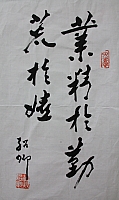 業精於勤
荒於嬉